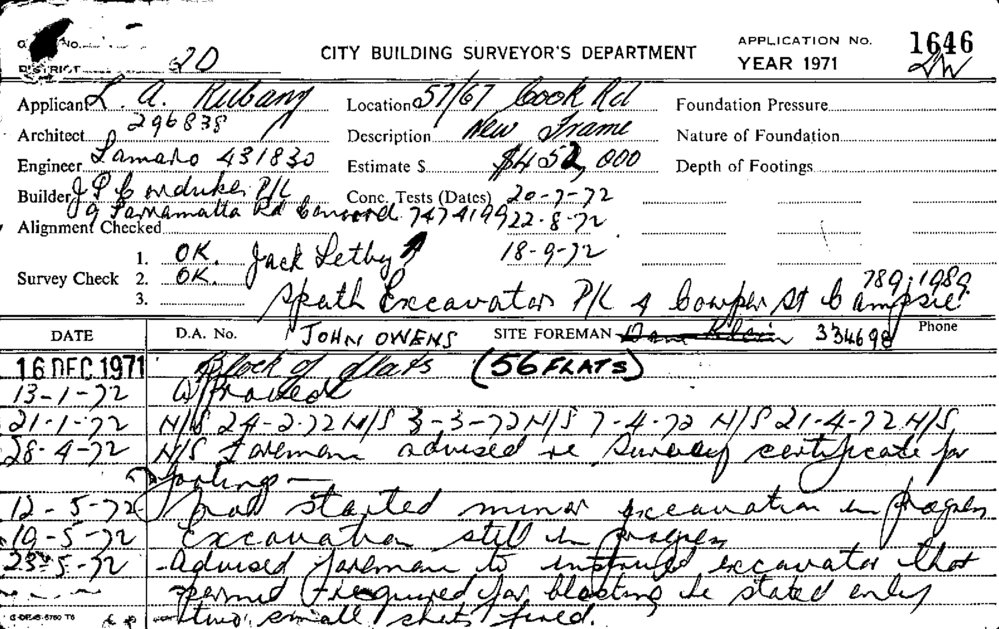 No.
DISTRICT 2D
CITY BUILDING SURVEYOR'S DEPARTMENT
APPLICATION No. 1646
YEAR 1971
Applicant L. A. Rubany Location 57/67 Cook Rd Foundation Pressure
296838
Architect Description New Frame Nature of Foundation
Engineer Lamaro 431830 Estimate $ $452,000 Depth of Footings
Builder J P Cordukes P/L Conc. Tests (Dates) 20-7-72
9 Parramatta Rd Concord 7474199 22-8-72
Alignment Checked
18-9-72
1. OK. Jack Letby
Survey Check 2. OK.
3.
Spath Excavator P/L 4 Cowper St Campsie 789,1989
DATE D.A. No. JOHN OWENS SITE FOREMAN 334698 Phone
16 DEC 1971 Block of flats (56 FLATS)
13-1-72 Approved
21-1-72 N/S 24-2-72 N/S 3-3-72 N/S 7-4-72 N/S 21-4-72 N/S
28-4-72 N/S Foreman advised re Survey certificate for
footings —
12-5-72 started minor excavation in progress
19-5-72 Excavation still in progress
23-5-72 Advised foreman to instruct excavator that
permit required for blasting he stated only
two small shots fired.